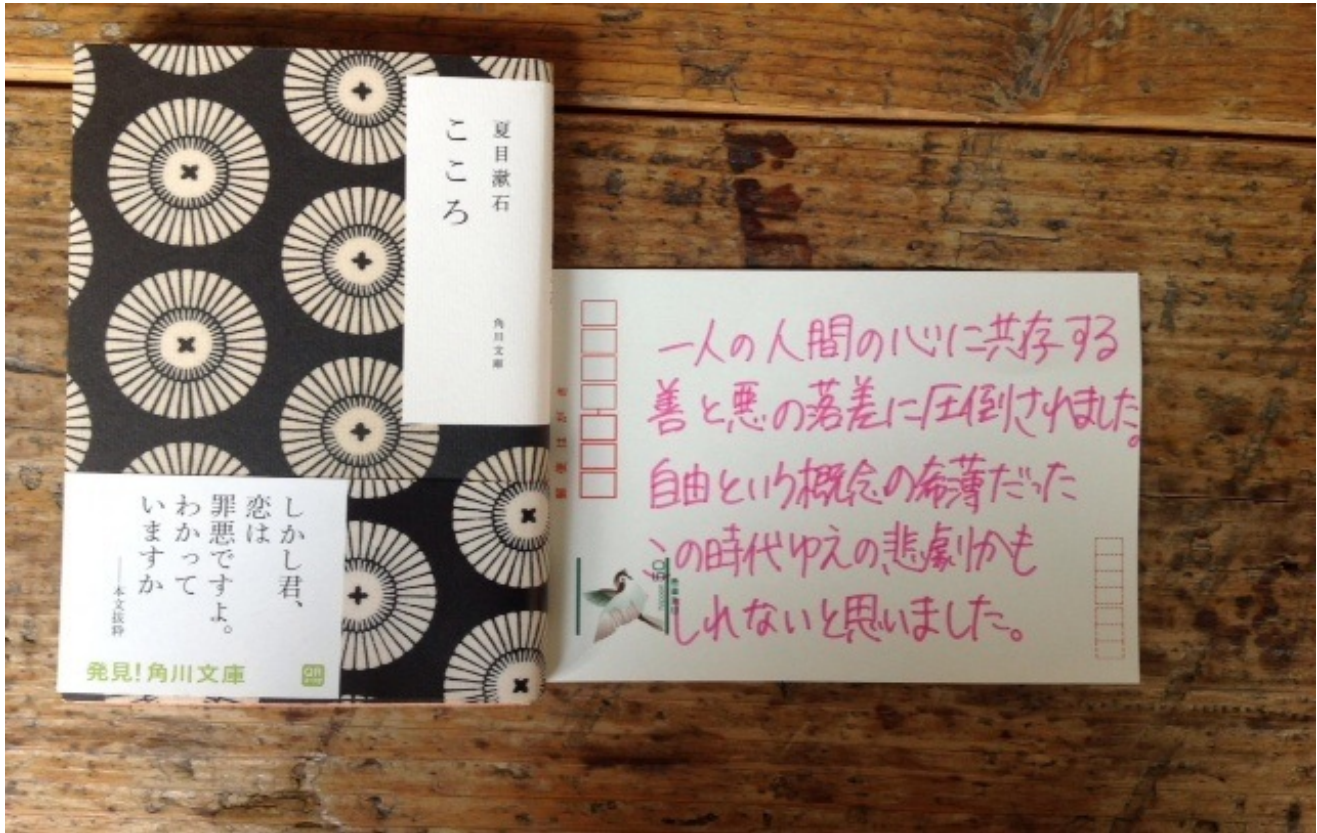 夏目漱石
こころ
角川文庫
しかし君、
恋は
罪悪ですよ。
わかって
いますか
──本文抜粋
発見!角川文庫
QR
郵便はがき
一人の人間の心に共存する
善と悪の落差に圧倒されました。
自由という概念の希薄だった
この時代ゆえの悲劇かも
しれないと思いました。
50